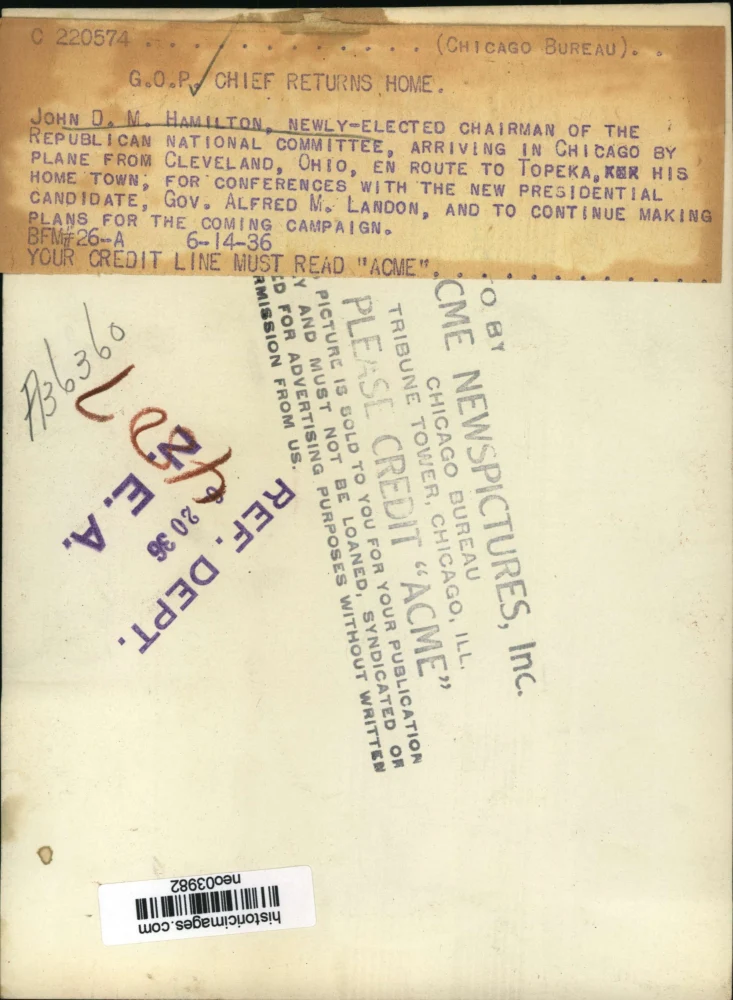 C 220574 . . . . . . . . . . . . (CHICAGO BUREAU). .
G.O.P. CHIEF RETURNS HOME.
JOHN D. M. HAMILTON, NEWLY-ELECTED CHAIRMAN OF THE
REPUBLICAN NATIONAL COMMITTEE, ARRIVING IN CHICAGO BY
PLANE FROM CLEVELAND, OHIO, EN ROUTE TO TOPEKA, HIS
HOME TOWN, FOR CONFERENCES WITH THE NEW PRESIDENTIAL
CANDIDATE, GOV. ALFRED M. LANDON, AND TO CONTINUE MAKING
PLANS FOR THE COMING CAMPAIGN.
BFM#26-A 6-14-36
YOUR CREDIT LINE MUST READ "ACME". . . . . . . . . . . .
O BY
CME NEWSPICTURES, Inc.
CHICAGO BUREAU
TRIBUNE TOWER, CHICAGO, ILL.
PLEASE CREDIT "ACME"
PICTURE IS SOLD TO YOU FOR YOUR PUBLICATION
Y AND MUST NOT BE LOANED, SYNDICATED OR
ED FOR ADVERTISING PURPOSES WITHOUT WRITTEN
RMISSION FROM US.
A36360
REF. DEPT.
20 36
N. E. A.
historicimages.com
neo03982